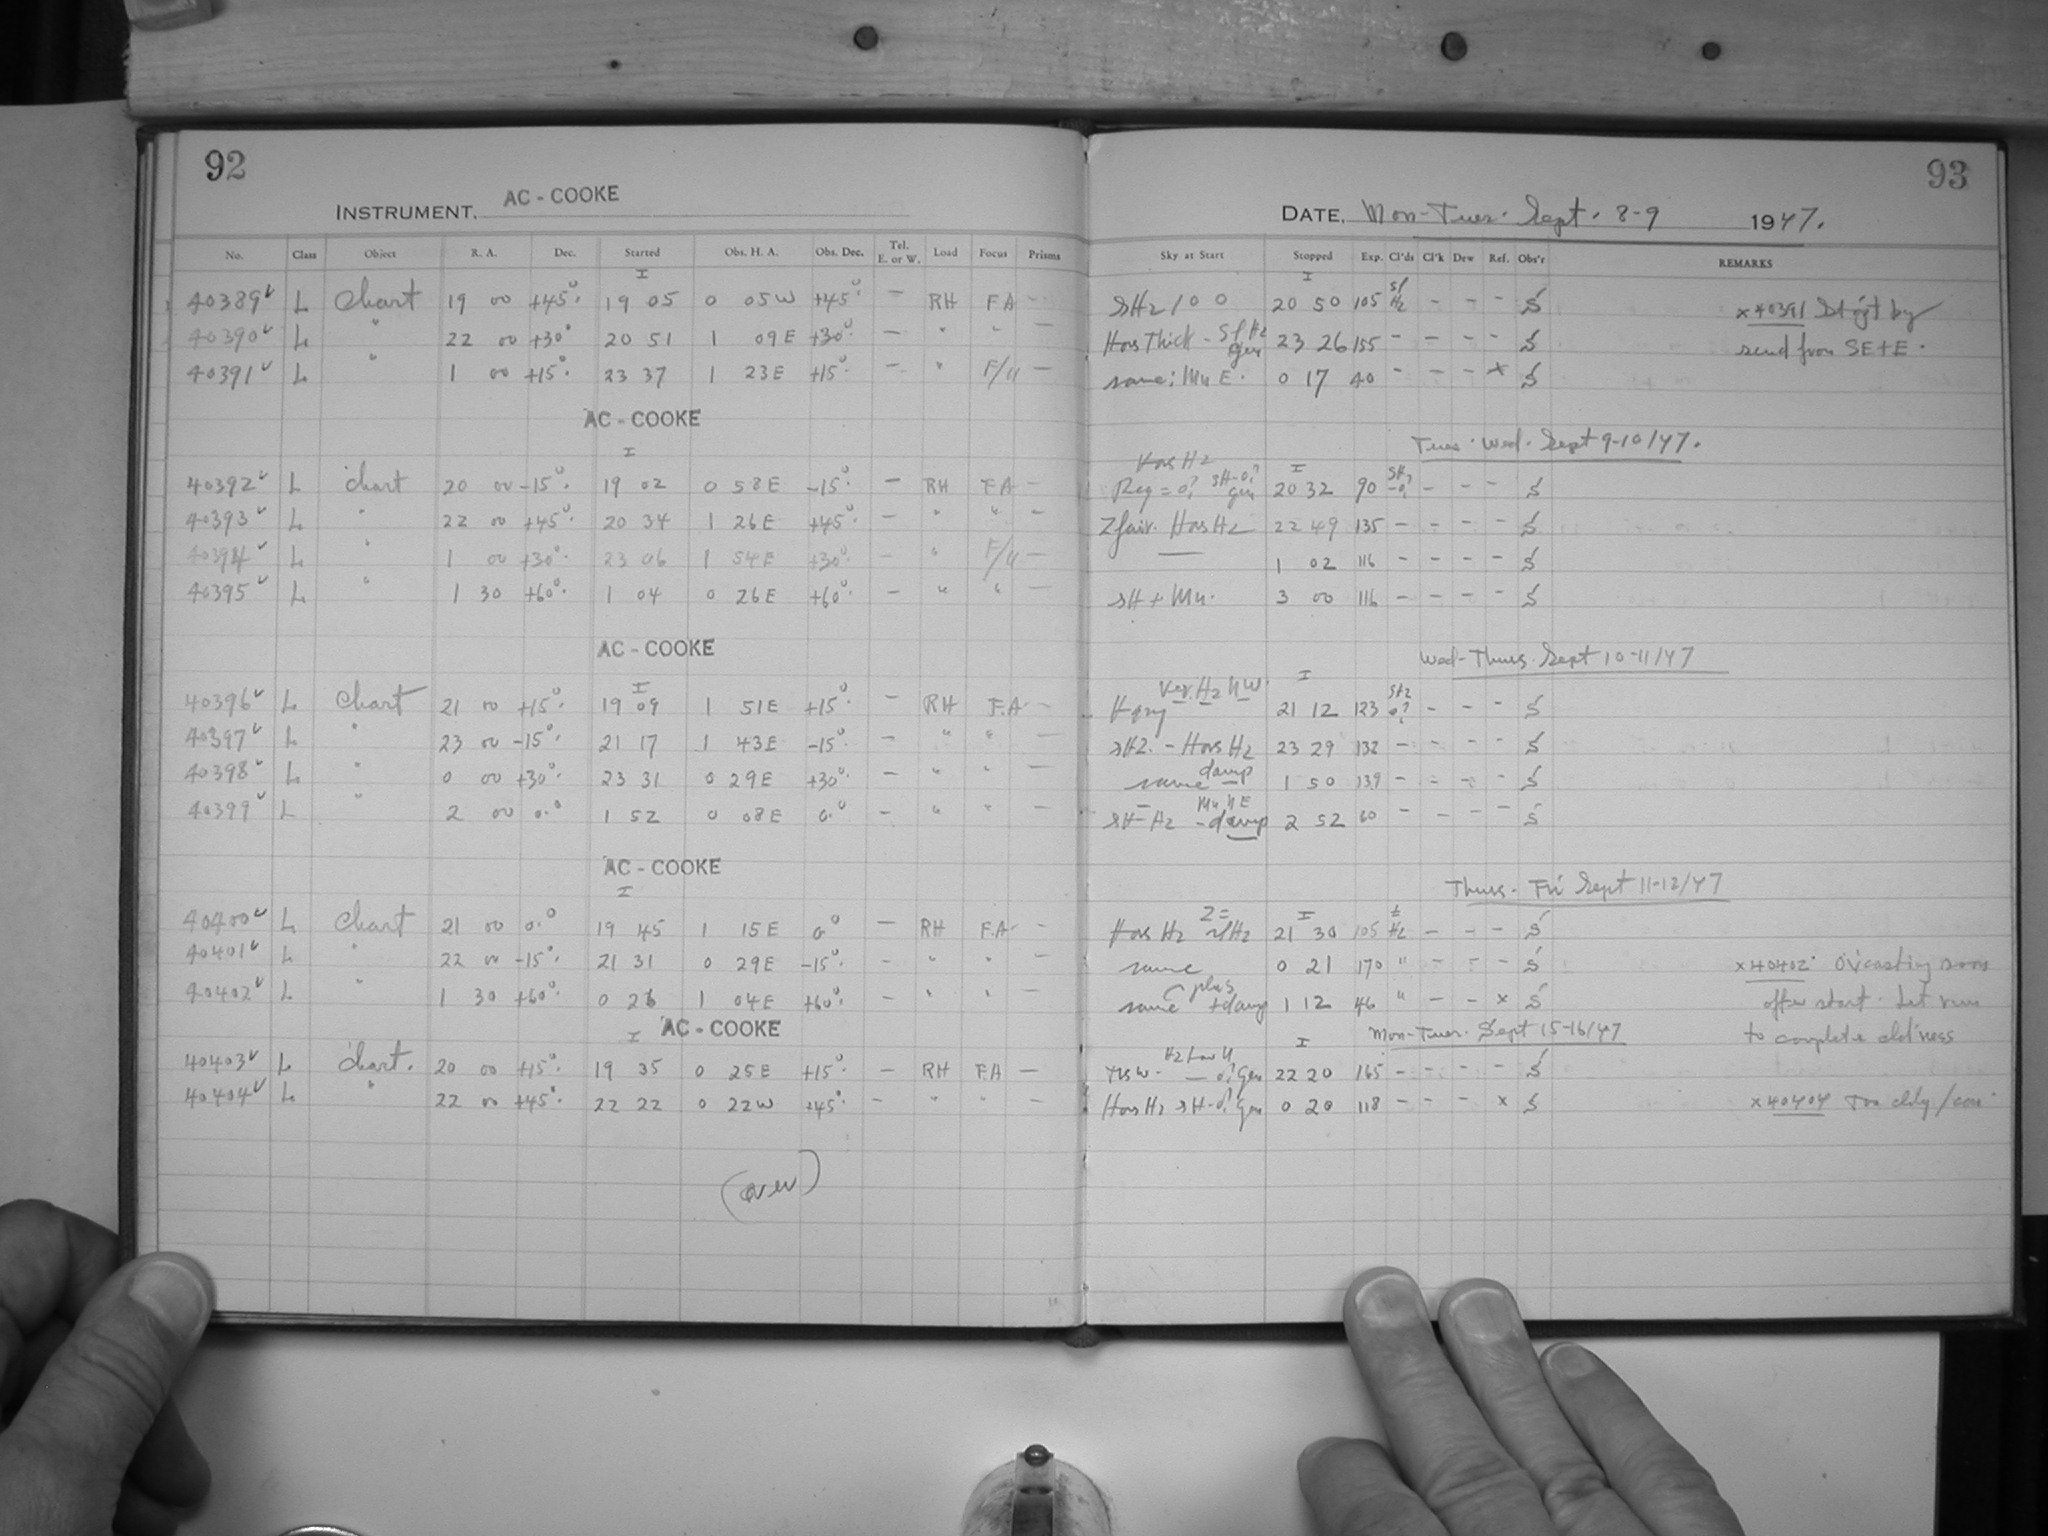 92
INSTRUMENT. AC - COOKE
No. Class Object R. A. Dec. Started Obs. H. A. Obs. Dec. Tel. E. or W. Load Focus Prisms
I
40389 L Chart 19 00 +45° 19 05 0 05W +45° — RH FA —
40390 L " 22 00 +30° 20 51 1 09E +30° — " " —
40391 L " 1 00 +15° 23 37 1 23E +15° — " F/4 —
AC - COOKE
I
40392 L Chart 20 00 -15° 19 02 0 58E -15° — RH FA —
40393 L " 22 00 +45° 20 34 1 26E +45° — " " "
40394 L " 1 00 +30° 23 06 1 54E +30° — " F/4 —
40395 L " 1 30 +60° 1 04 0 26E +60° — " " —
AC - COOKE
I
40396 L Chart 21 00 +15° 19 09 1 51E +15° — RH F.A —
40397 L " 23 00 -15° 21 17 1 43E -15° — " " —
40398 L " 0 00 +30° 23 31 0 29E +30° — " " —
40399 L " 2 00 0° 1 52 0 08E 0° — " " —
AC - COOKE
I
40400 L Chart 21 00 0° 19 45 1 15E 0° — RH F.A —
40401 L " 22 00 -15° 21 31 0 29E -15° — " " —
40402 L " 1 30 +60° 0 26 1 04E +60° — " " —
I AC - COOKE
40403 L Chart. 20 00 +15° 19 35 0 25E +15° — RH FA —
40404 L " 22 00 +45° 22 22 0 22W +45° — " " —
(over)
93
DATE, Mon-Tues. Sept. 8-9 1947.
Sky at Start Stopped Exp. Cl'ds Cl'k Dew Ref. Obs'r REMARKS
I
sHz 20 50 105 Hz - - - S x 40391 by
Hors Thick - Sl Hz gen 23 26 155 - - - - S send from SE+E.
same; Mn E. 0 17 40 - - - x S
Tues. Wed. Sept 9-10/47.
Hors Hz I
Req = 0? sH-0? gen 20 32 90 - - - S
Z fair. Hors Hz 22 49 135 - - - - S
— 1 02 116 - - - - S
sH + Mn. 3 00 116 - - - - S
Wed-Thurs. Sept 10-11/47
Hz NW. I
21 12 123 - - - S
sHz. - Hors Hz 23 29 132 - - - - S
same damp 1 50 139 - - - - S
Mn NE
sH-Hz - damp 2 52 60 - - - - S
Thurs. Fri Sept 11-12/47
Z= I
Hors Hz 21 30 105 Hz - - - S
same 0 21 170 " - - - S x 40402. O'casting soon
same plus + damp 1 12 46 " - - x S after start. Let run
Mon-Tues. Sept 15-16/47 to complete
Hz Low N I
- 0? Gen 22 20 165 - - - - S
Hors Hz sH-0? Gen 0 20 118 - - - x S x 40404 Too